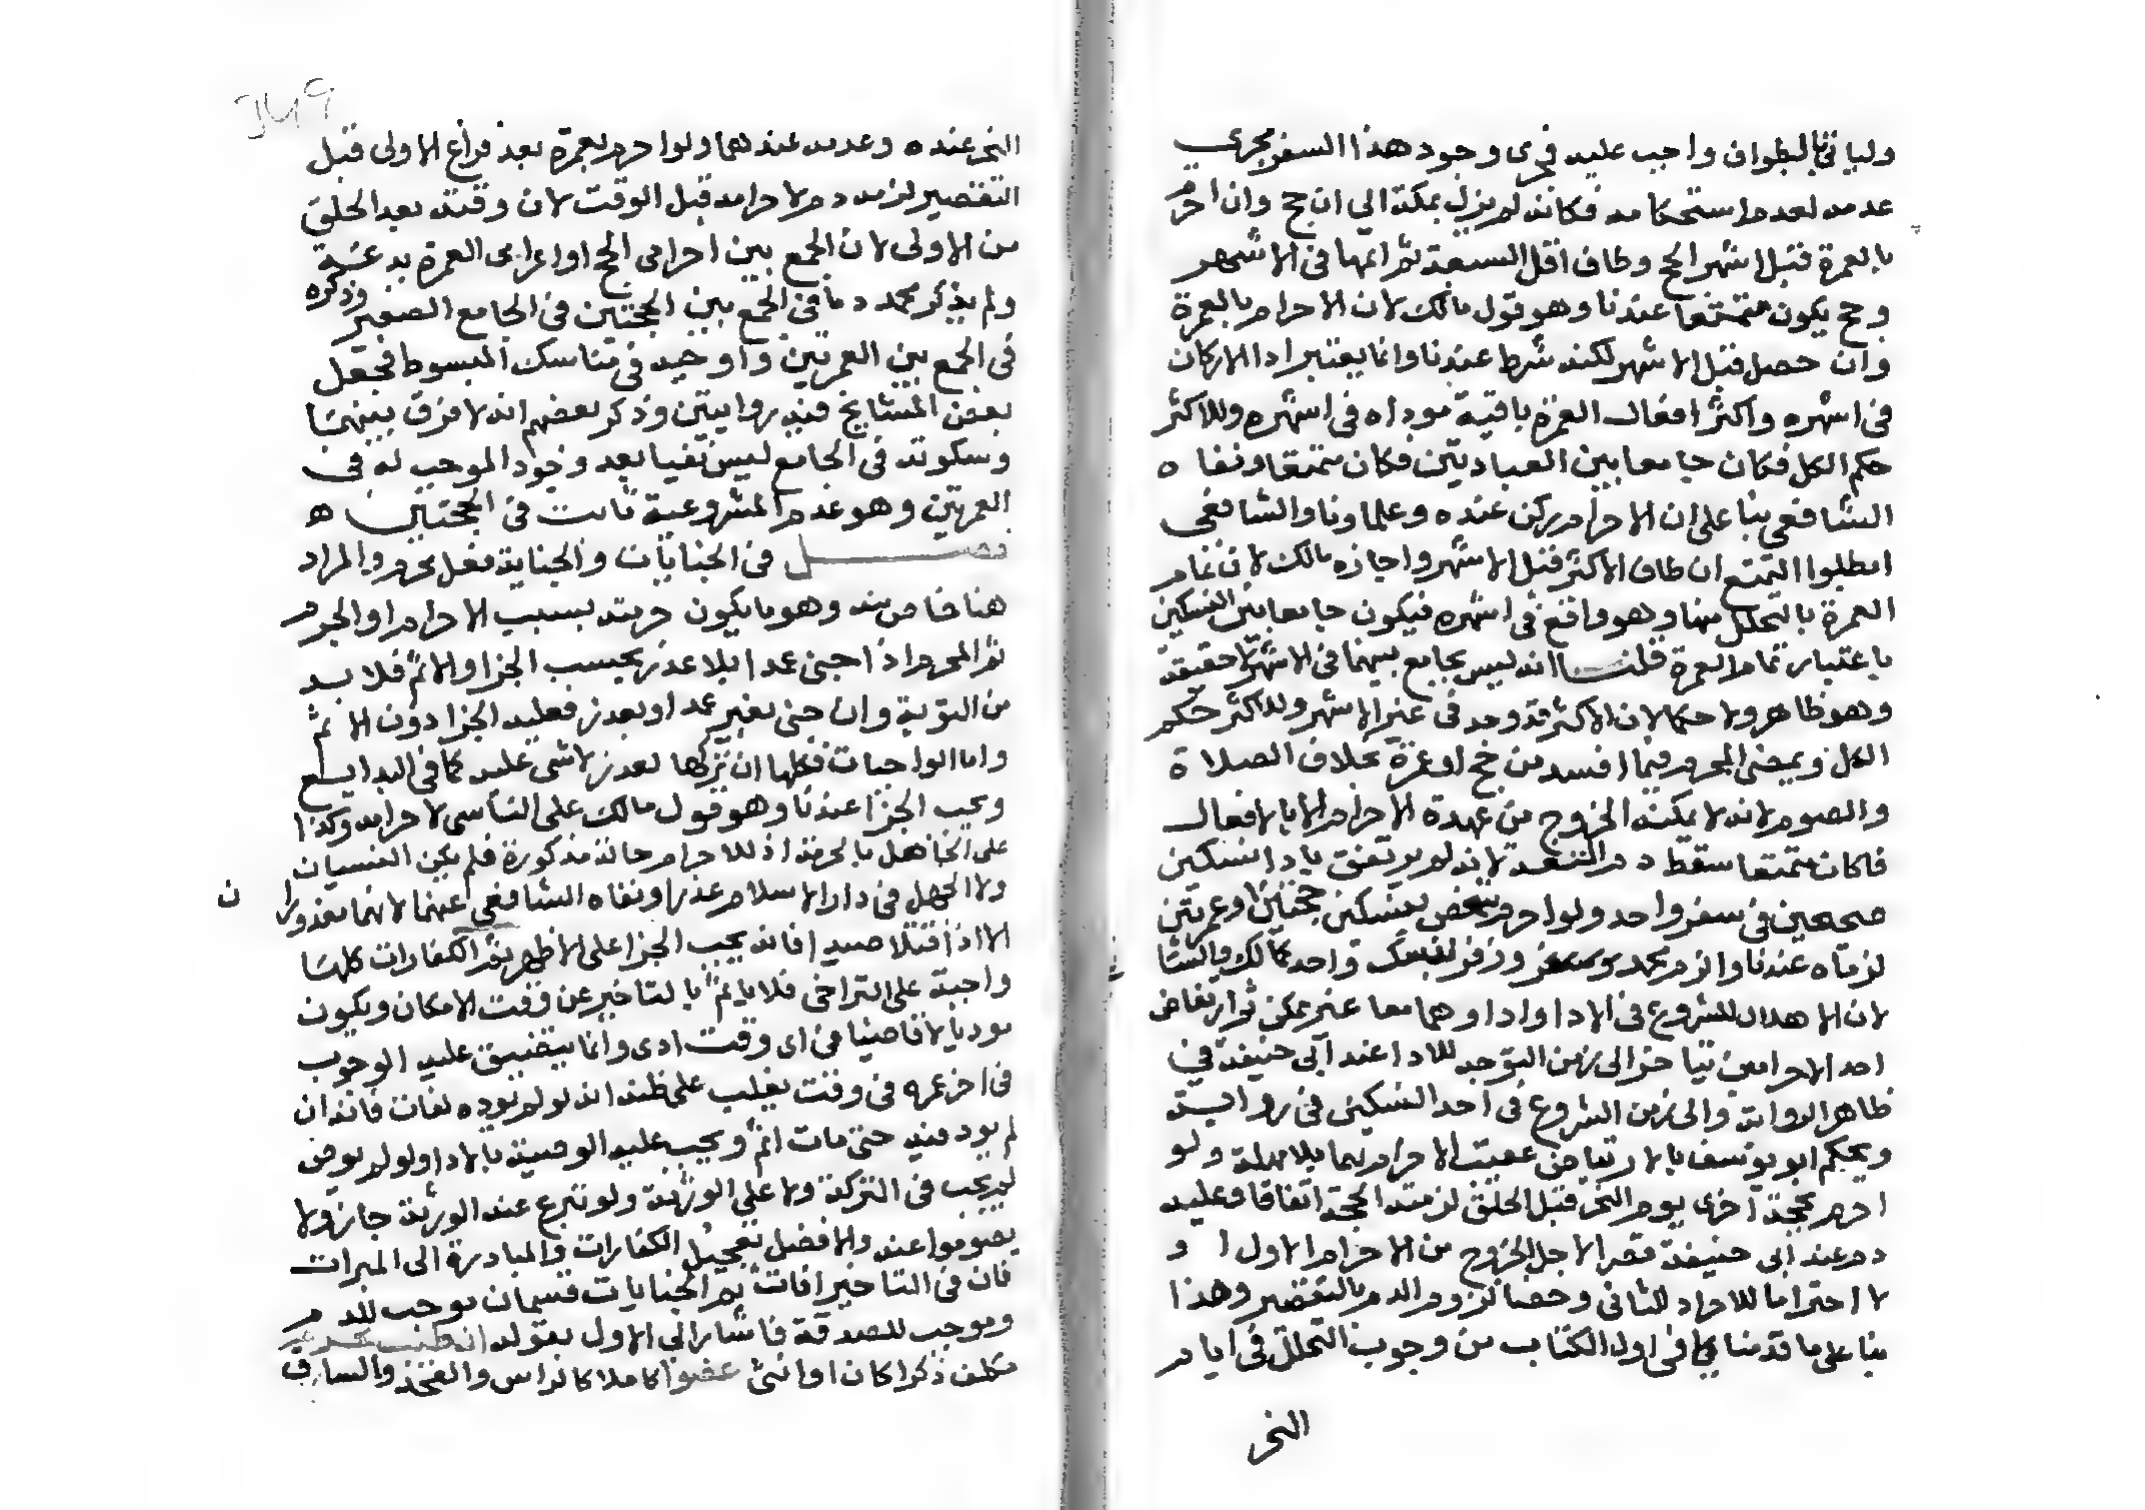 ولياتي بالطواف واجب عليه فجرى وجود هذا السفر مجرى
عدمه لعدم استحكامه فكانه لم يزل بمكة الي ان حج وان احرم
بالعمرة قبل اشهر الحج وطاف اقل السبعة ثم اتمها فى الاشهر
وحج يكون متمتعا عندنا وهو قول مالك لان الاحرام بالعمرة
وان حصل قبل الاشهر لكنه شرط عندنا وانما يعتبر اداء الاركان
فى اشهره واكثر افعال العمرة باقية موداه فى اشهره وللاكثر
حكم الكل فكان جامعا بين العبادتين فكان متمتعا ونفاه
الشافعي بنا على ان الاحرام ركن عنده وعلماونا والشافعى
ابطلوا التمتع ان طاف الاكثر قبل الاشهر واجازه مالك لان تمام
العمرة بالتحلل منها وهو واقع فى اشهره فيكون جامعا بين النسكين
باعتبار تمام العمرة قلنا انه ليس بجامع بينهما فى الاشهر لا حقيقة
وهو ظاهر ولا حكما لان الاكثر قد وجد فى غير الاشهر وللاكثر حكم
الكل ويمضى المحرم فيما افسد من حج او عمرة بخلاف الصلاة
والصوم لانه لا يمكنه الخروج من عهدة الاحرام الا بالافعال
فاكان متمتعا سقط دم التمتع لانه لم يرتفق باداء نسكين
صحيحين فى سفر واحد ولو احرم شخص بنسكين حجتين او عمرتين
لزماه عندنا والزم محمد وزفر نفسك واحد كمالك والشا
لان الاهلال للشروع فى الاداء واداوهما معا غير ممكن ثم ارتفاض
احد الاحرامين يتاخر الى زمن التوجه للاداء عند ابى حنيفة في
ظاهر الرواية والى زمن الشروع فى احد النسكين فى رواية
ويحكم ابو يوسف بالارتفاض عقيب الاحرام بهما بلا مهلة ولو
احرم بحجة اخرى يوم النحر قبل الحلق لزمته الحجة اتفاقا وعليه
دم عند ابى حنيفة قصر الاجل الخروج من الاحرام الاول او
لا احتراما للاحرام الثانى وخصا لزوم الدم بالتقصير وهذا
بنا على ما قدمناه فى اول الكتاب من وجوب التحلل فى ايام
النحر
النحر عنده وعدمه عندهما ولو احرم بعمرة بعد فراغ الاولى قبل
التقصير لزمه دم لاحرامه قبل الوقت لان وقته بعد الحلق
من الاولى لان الجمع بين احرامى الحج او احرامى العمرة بدعة
ولم يذكر محمد دما فى الجمع بين الحجتين فى الجامع الصغير وذكره
فى الجمع بين العمرتين واوجبه فى مناسك المبسوط فجعل
بعض المشايخ فيه روايتين وذكر بعضهم انه لا فرق بينهما
وسكوته فى الجامع ليس نفيا بعد وجود الموجب له فى
العمرتين وهو عدم المشروعية ثابت فى الحجتين ه
فصل فى الجنايات والجناية فعل محرم والمراد
هنا خاص منه وهو ما يكون حرمته بسبب الاحرام او الحرم
ثم المحرم اذا جنى عمدا بلا عذر يجب الجزا والاثم فلا بد
من التوبة وان جنى بغير عمد او بعذر فعليه الجزا دون الاثم
واما الواجبات فكلها ان تركها لعذر لا شى عليه كما فى البدايع
ويجب الجزا عندنا وهو قول مالك على الناسى لاحرامه وكذا
على الجاهل بالحرمة اذ للاحرام حالة مذكورة فلم يكن النسيان
ولا الجهل فى دار الاسلام عذرا ونفاه الشافعى عنهما لانهما معذوران
الا اذا قتلا صيدا فانه يجب الجزا على الاظهر ثم الكفارات كلها
واجبة على التراخى فلا ياثم بالتاخير عن وقت الامكان ويكون
موديا لا قاضيا فى اى وقت ادى وانما يتضيق عليه الوجوب
فى اخر عمره فى وقت يغلب على ظنه انه لو لم يوده لفات فانه ان
لم يود فيه حتى مات اثم ويجب عليه الوصية بالاداء ولو لم يوص
لم يجب فى التركة ولا على الورثة ولو تبرع عنه الورثة جاز ولا
يصوموا عنه والافضل تعجيل الكفارات والمبادرة الى المبرات
فان فى التاخير افات ثم الجنايات قسمان موجب للدم
وموجب للصدقة فاشار الى الاول بقوله ان طيب محرم
مكلف ذكرا كان او انثى عضوا كاملا كالراس والفخذ والساق